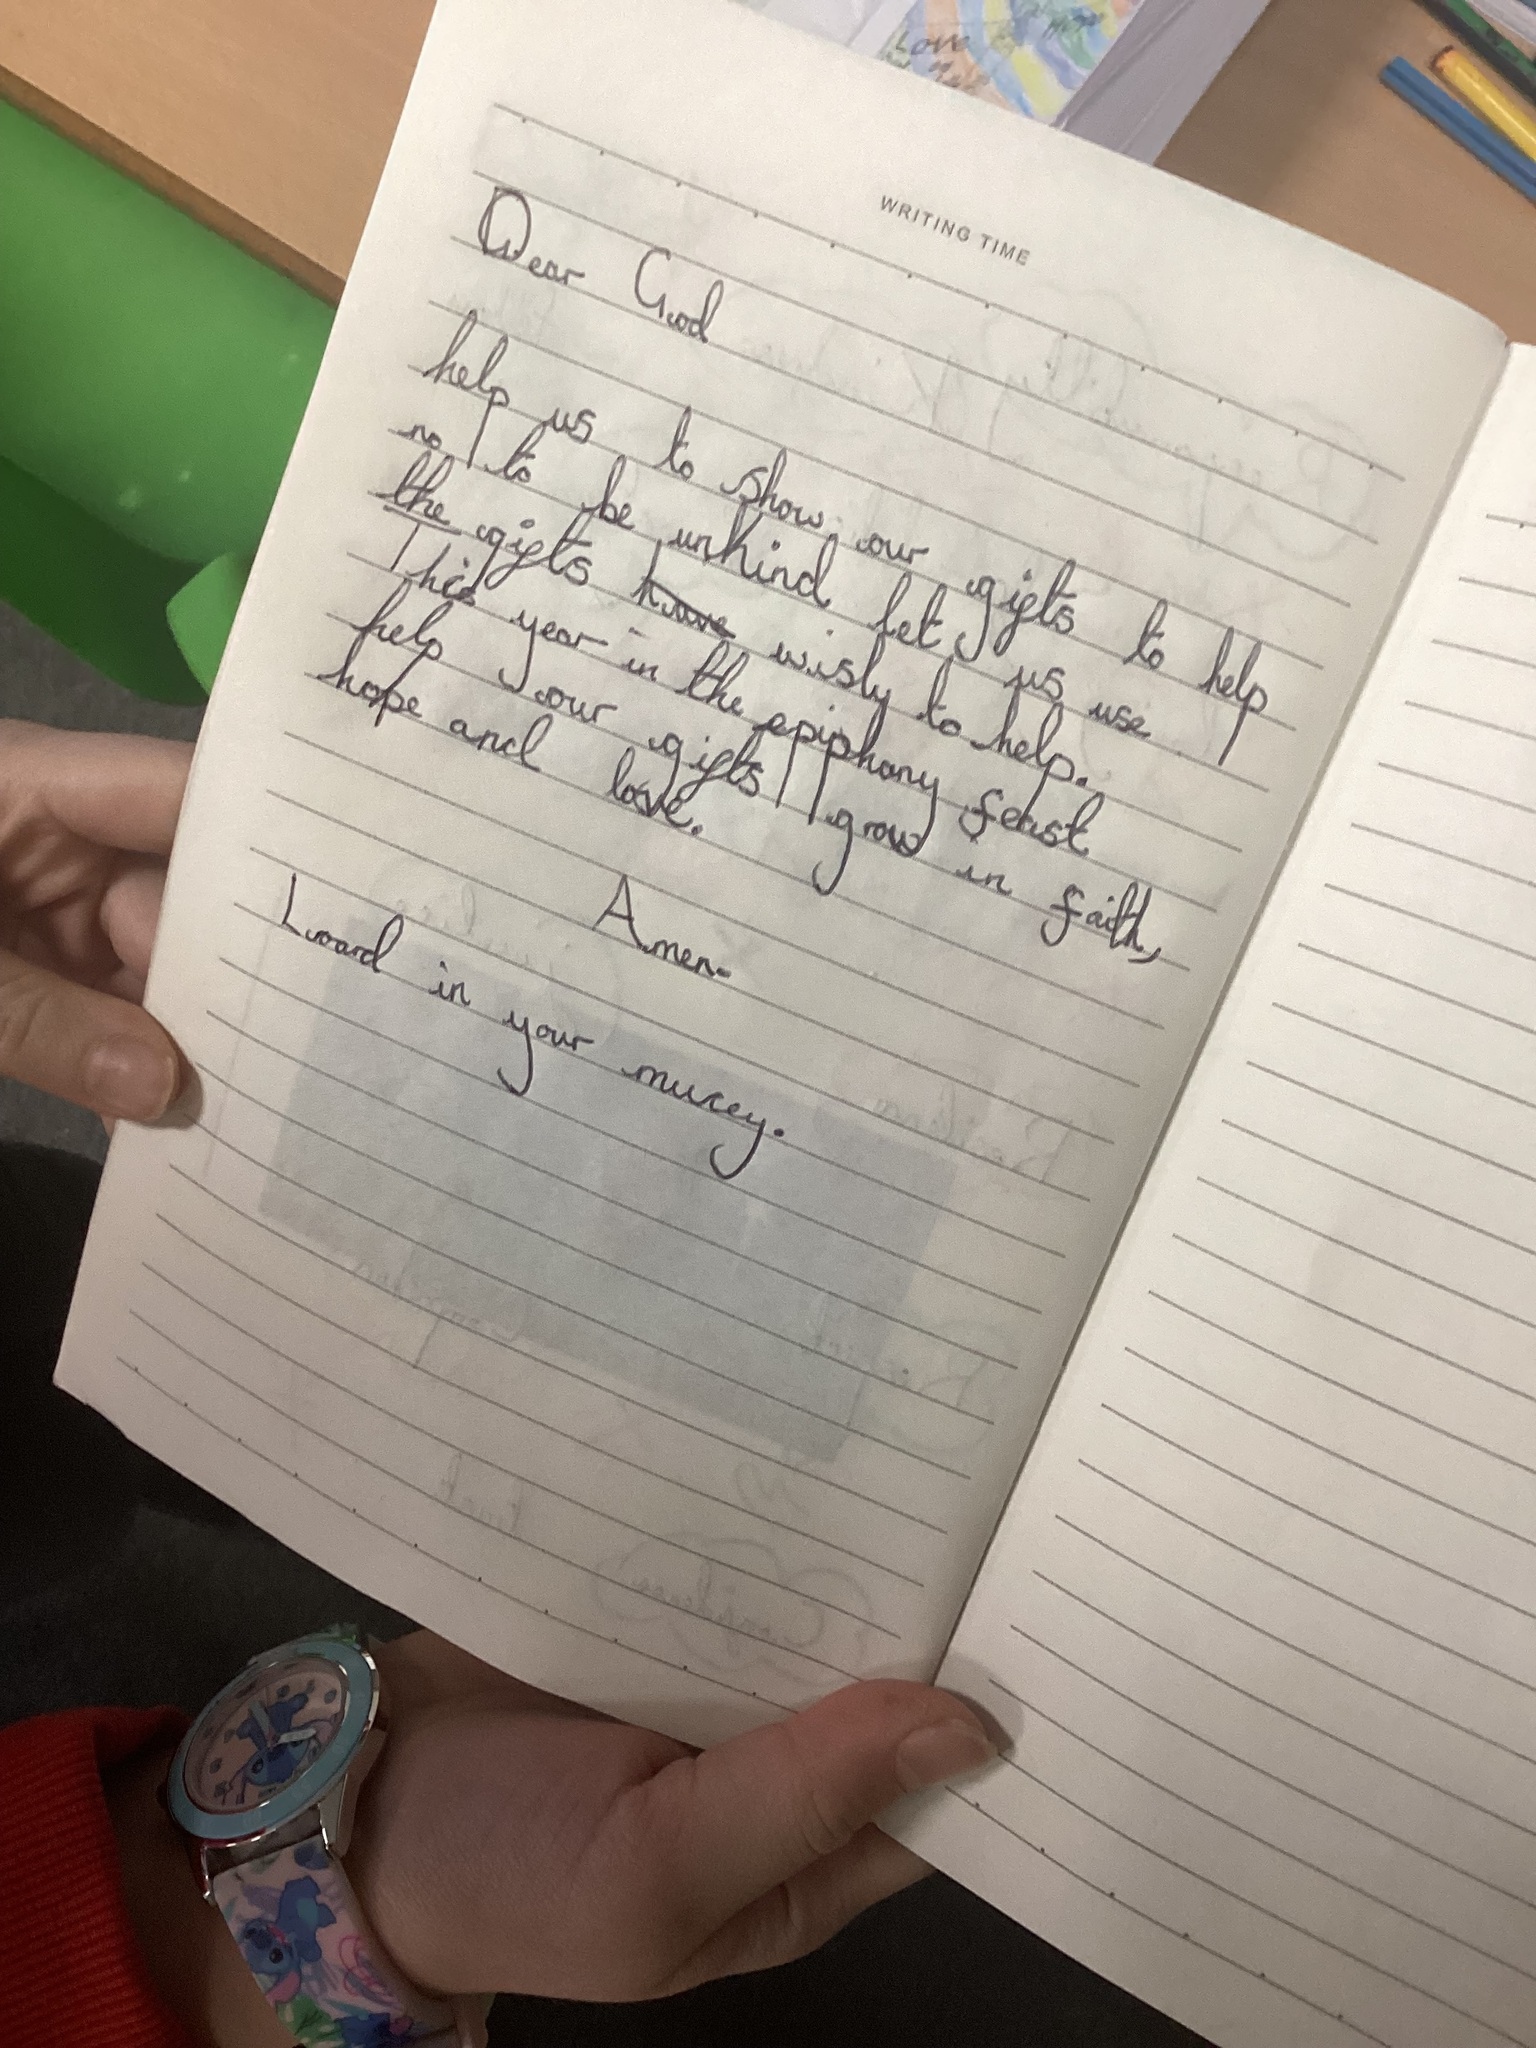 Love
WRITING TIME
Dear God
help us to show our gifts to help
no to be unkind let us use
the gifts have wisly to help.
This year in the epiphany feast
help our gifts grow in faith,
hope and love.
Amen.
Loard in your murcy.